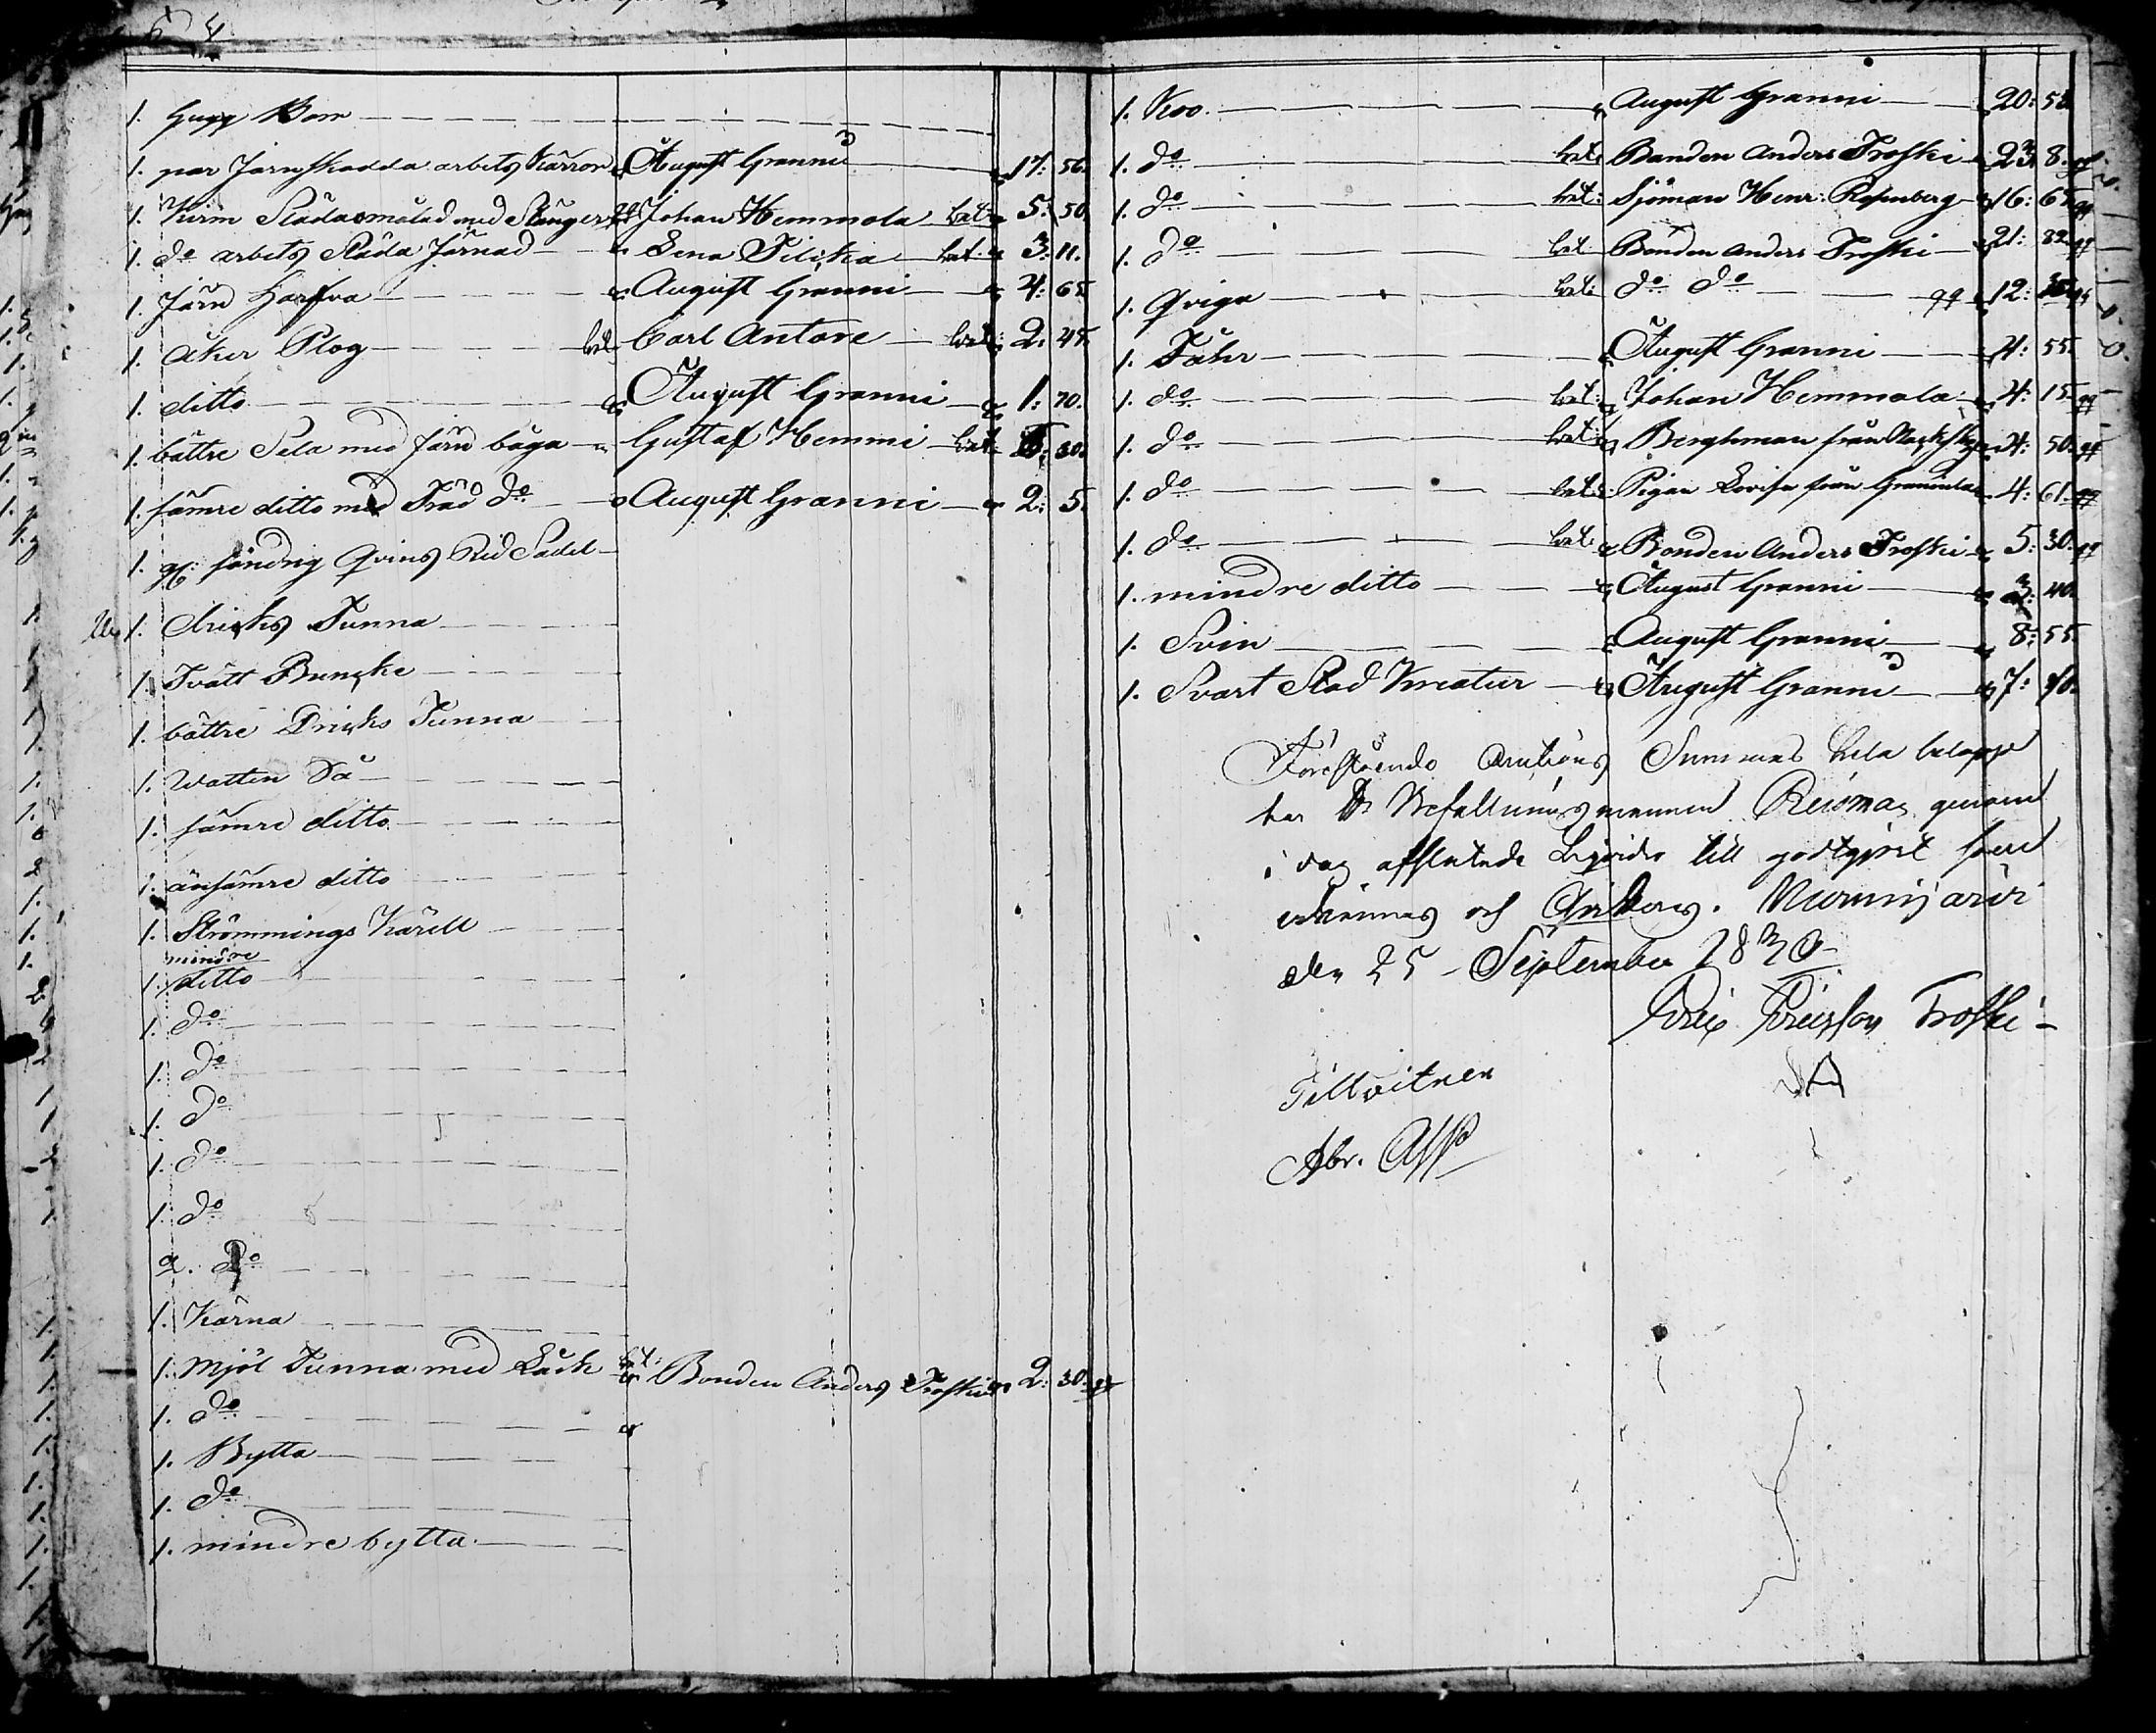 1. Hugg Bom
1. par Järnskodda arbets Kärror August Granni 17: 56.
1. Kurm Släda målad med Stänger Johan Hemmola bet: 5: 50
1. do arbets Släda Järnad Lena Filika bet: 3: 11.
1. Järn Harfva August Granni 4: 65
1. Åker Plog bet. Carl Antave bet: 2: 45.
1. ditto August Granni 1: 70.
1. bättre Sela med Järn båga Gustaf Hemmi bet: 30.
1. sämre ditto med Träd do August Granni 2: 5.
1. söndrig Qvins Rid Sadel
1. dricks Tunna
1. Tvätt Buncke
1. bättre Dricks Tunna
1. Watten Så
1. sämre ditto
1. änsämre ditto
1. Strömmings Kärill
mindre
1. ditto
1. do
1. do
1. do
1. do
1. do
do
1. Kärna
1. Mjöl Tunna med Låck bet: Bonden Anders Troski 2: 30.
1. do
1. Bytta
1. do
1. mindre bytta
1. Koo. August Granni 20: 58.
1. do bet: Bonden Anders Troski 23. 8.
1. do bet: Sjöman Henr: Rosenberg 16: 65
1. do bet Bonden Anders Troski 21: 82
1. Qviga bet: do do qq 12:
1. Fåhr August Granni 4: 55.
1. do bet: Johan Hemmola 4: 15 qq
1. do bet: Berghman från 4: 50. qq
1. do bet: Pigan Lovisa från 4: 61. qq
1. do bet: Bonden Anders Troski 5: 30. qq
1. mindre ditto August Granni 3: 40.
1. Svin August Granni 8: 55.
1. Svart Stod Kreatur August Granni 7:
Förestående Auctions Summas hela belopp
har Befallningsmannen genom
i dag afslutade till godtgjort
erkännes och Qvitteras. Nurmijärvi
den 25 September 1830
Eric Ericsson Troski
Tillvitnar
Abr.